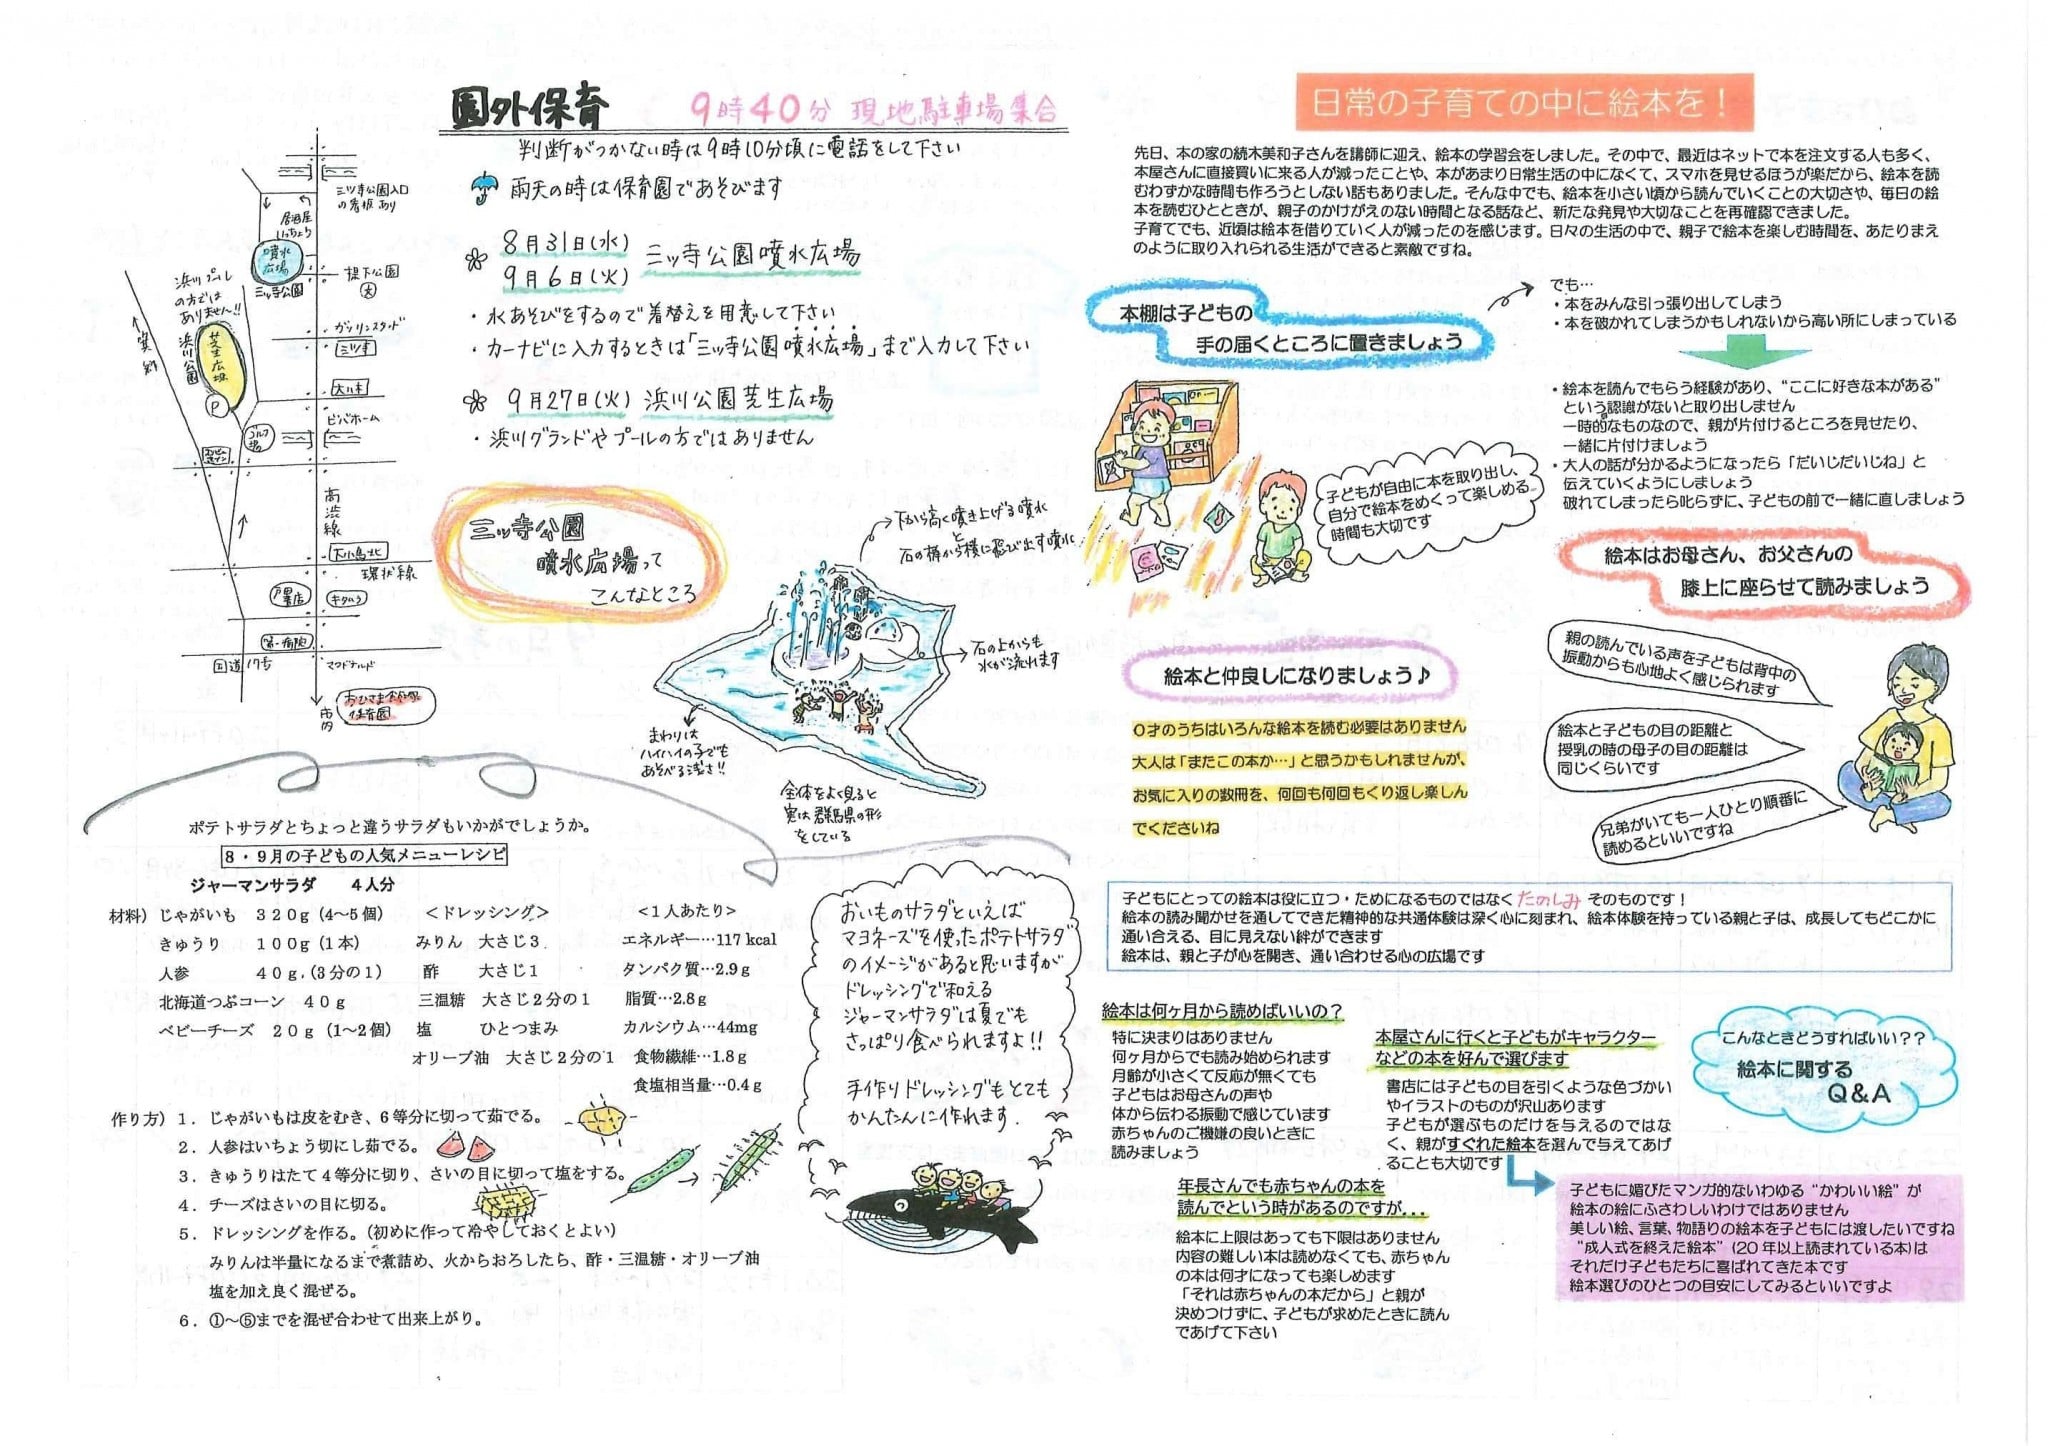 園外保育　9時40分 現地駐車場集合
判断がつかない時は9時10分頃に電話をして下さい
雨天の時は保育園であそびます
8月31日(水)
9月6日(火)
三ッ寺公園噴水広場
・水あそびをするので着替えを用意して下さい
・カーナビに入力するときは「三ッ寺公園噴水広場」まで入力して下さい
9月27日(火) 浜川公園芝生広場
・浜川グランドやプールの方ではありません
三ッ寺公園入口
の看板あり
居酒屋
いっちょう
噴水
広場
三ッ寺公園
堤下公園
浜川プール
の方では
ありませーん!!
浜川公園
芝生広場
P
ガソリンスタンド
三ツ寺
大八木
ビバホーム
ゴルフ場
高渋線
下小鳥北
環状線
キタムラ
第一病院
国道17号
マクドナルド
市内
保育園
三ッ寺公園
噴水広場って
こんなところ
下から高く噴き上げる噴水
と
石の横から横に飛び出す噴水
石の上からも
水が流れます
まわりは
ハイハイの子でも
あそべる浅さ!!
全体をよく見ると
実は群馬県の形
をしている
ポテトサラダとちょっと違うサラダもいかがでしょうか。
8・9月の子どもの人気メニューレシピ
ジャーマンサラダ　4人分
材料）じゃがいも　320g (4～5個)　＜ドレッシング＞　＜1人あたり＞
きゅうり　100g (1本)　みりん　大さじ3　エネルギー…117 kcal
人参　40g. (3分の1)　酢　大さじ1　タンパク質…2.9g
北海道つぶコーン　40g　三温糖　大さじ2分の1　脂質…2.8g
ベビーチーズ　20g (1～2個)　塩　ひとつまみ　カルシウム…44mg
オリーブ油　大さじ2分の1　食物繊維…1.8g
食塩相当量…0.4g
作り方）1．じゃがいもは皮をむき、6等分に切って茹でる。
2．人参はいちょう切にし茹でる。
3．きゅうりはたて4等分に切り、さいの目に切って塩をする。
4．チーズはさいの目に切る。
5．ドレッシングを作る。（初めに作って冷やしておくとよい）
みりんは半量になるまで煮詰め、火からおろしたら、酢・三温糖・オリーブ油
塩を加え良く混ぜる。
6．①～⑤までを混ぜ合わせて出来上がり。
おいものサラダといえば
マヨネーズを使ったポテトサラダ
のイメージがあると思いますが
ドレッシングで和える
ジャーマンサラダは夏でも
さっぱり食べられますよ!!
手作りドレッシングもとても
かんたんに作れます.
日常の子育ての中に絵本を！
先日、本の家の続木美和子さんを講師に迎え、絵本の学習会をしました。その中で、最近はネットで本を注文する人も多く、
本屋さんに直接買いに来る人が減ったことや、本があまり日常生活の中になくて、スマホを見せるほうが楽だから、絵本を読
むわずかな時間も作ろうとしない話もありました。そんな中でも、絵本を小さい頃から読んでいくことの大切さや、毎日の絵
本を読むひとときが、親子のかけがえのない時間となる話など、新たな発見や大切なことを再確認できました。
子育てでも、近頃は絵本を借りていく人が減ったのを感じます。日々の生活の中で、親子で絵本を楽しむ時間を、あたりまえ
のように取り入れられる生活ができると素敵ですね。
本棚は子どもの
手の届くところに置きましょう
でも…
・本をみんな引っ張り出してしまう
・本を破かれてしまうかもしれないから高い所にしまっている
・絵本を読んでもらう経験があり、“ここに好きな本がある”
という認識がないと取り出しません
一時的なものなので、親が片付けるところを見せたり、
一緒に片付けましょう
・大人の話が分かるようになったら「だいじだいじね」と
伝えていくようにしましょう
破れてしまったら叱らずに、子どもの前で一緒に直しましょう
子どもが自由に本を取り出し、
自分で絵本をめくって楽しめる
時間も大切です
絵本はお母さん、お父さんの
膝上に座らせて読みましょう
親の読んでいる声を子どもは背中の
振動からも心地よく感じられます
絵本と子どもの目の距離と
授乳の時の母子の目の距離は
同じくらいです
兄弟がいても一人ひとり順番に
読めるといいですね
絵本と仲良しになりましょう♪
0才のうちはいろんな絵本を読む必要はありません
大人は「またこの本か…」と思うかもしれませんが、
お気に入りの数冊を、何回も何回もくり返し楽しん
でくださいね
子どもにとっての絵本は役に立つ・ためになるものではなく たのしみ そのものです！
絵本の読み聞かせを通してできた精神的な共通体験は深く心に刻まれ、絵本体験を持っている親と子は、成長してもどこかに
通い合える、目に見えない絆ができます
絵本は、親と子が心を開き、通い合わせる心の広場です
こんなときどうすればいい？？
絵本に関する
Q&A
絵本は何ヶ月から読めばいいの？
特に決まりはありません
何ヶ月からでも読み始められます
月齢が小さくて反応が無くても
子どもはお母さんの声や
体から伝わる振動で感じています
赤ちゃんのご機嫌の良いときに
読みましょう
年長さんでも赤ちゃんの本を
読んでという時があるのですが...
絵本に上限はあっても下限はありません
内容の難しい本は読めなくても、赤ちゃん
の本は何才になっても楽しめます
「それは赤ちゃんの本だから」と親が
決めつけずに、子どもが求めたときに読ん
であげて下さい
本屋さんに行くと子どもがキャラクター
などの本を好んで選びます
書店には子どもの目を引くような色づかい
やイラストのものが沢山あります
子どもが選ぶものだけを与えるのではな
く、親がすぐれた絵本を選んで与えてあげ
ることも大切です
子どもに媚びたマンガ的ないわゆる“かわいい絵”が
絵本の絵にふさわしいわけではありません
美しい絵、言葉、物語りの絵本を子どもには渡したいですね
“成人式を終えた絵本”（20年以上読まれている本）は
それだけ子どもたちに喜ばれてきた本です
絵本選びのひとつの目安にしてみるといいですよ